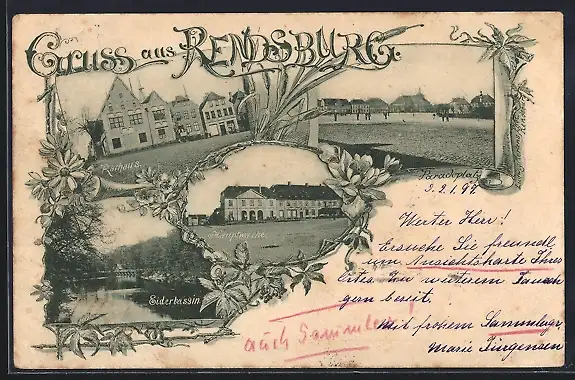 Gruss aus RENDSBURG.
Rathaus.
Paradeplatz
Hauptwache
Eiderbassin
Werter Herr!
Ersuche Sie freundl.
um Ansichtskarte Ihres
Ortes. Zu weiterem Tausch
gern bereit.
Mit frohem Sammlergr.
Marie Jürgensen
auch Sammler!